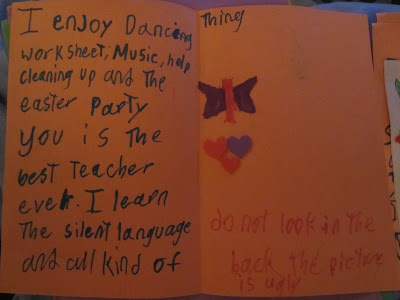 I enjoy Dancing
worksheet, Music, help
cleaning up and the
easter party
you is the
best teacher
ever. I learn
The silent language
and all kind of
Thing
do not look in the
back the picture
is ugly